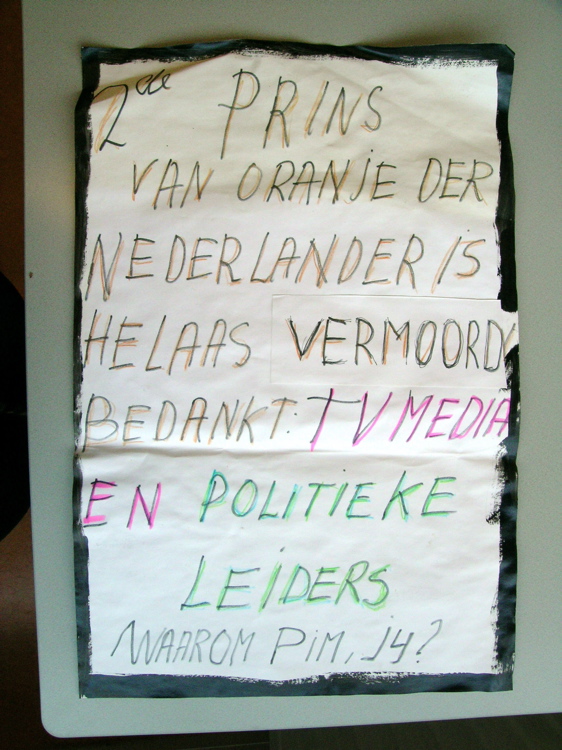 2de PRINS
VAN ORANJE DER
NEDERLANDER IS
HELAAS VERMOORD
BEDANKT: TV MEDIA
EN POLITIEKE
LEIDERS
WAAROM PIM, JY?